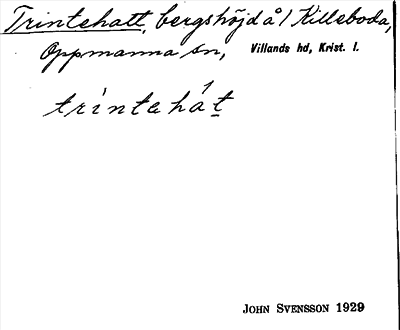 Trintehatt, bergshöjd å / Killeboda,
Oppmanna sn, Villands hd, Krist. l.
trìntehát
JOHN SVENSSON 1929